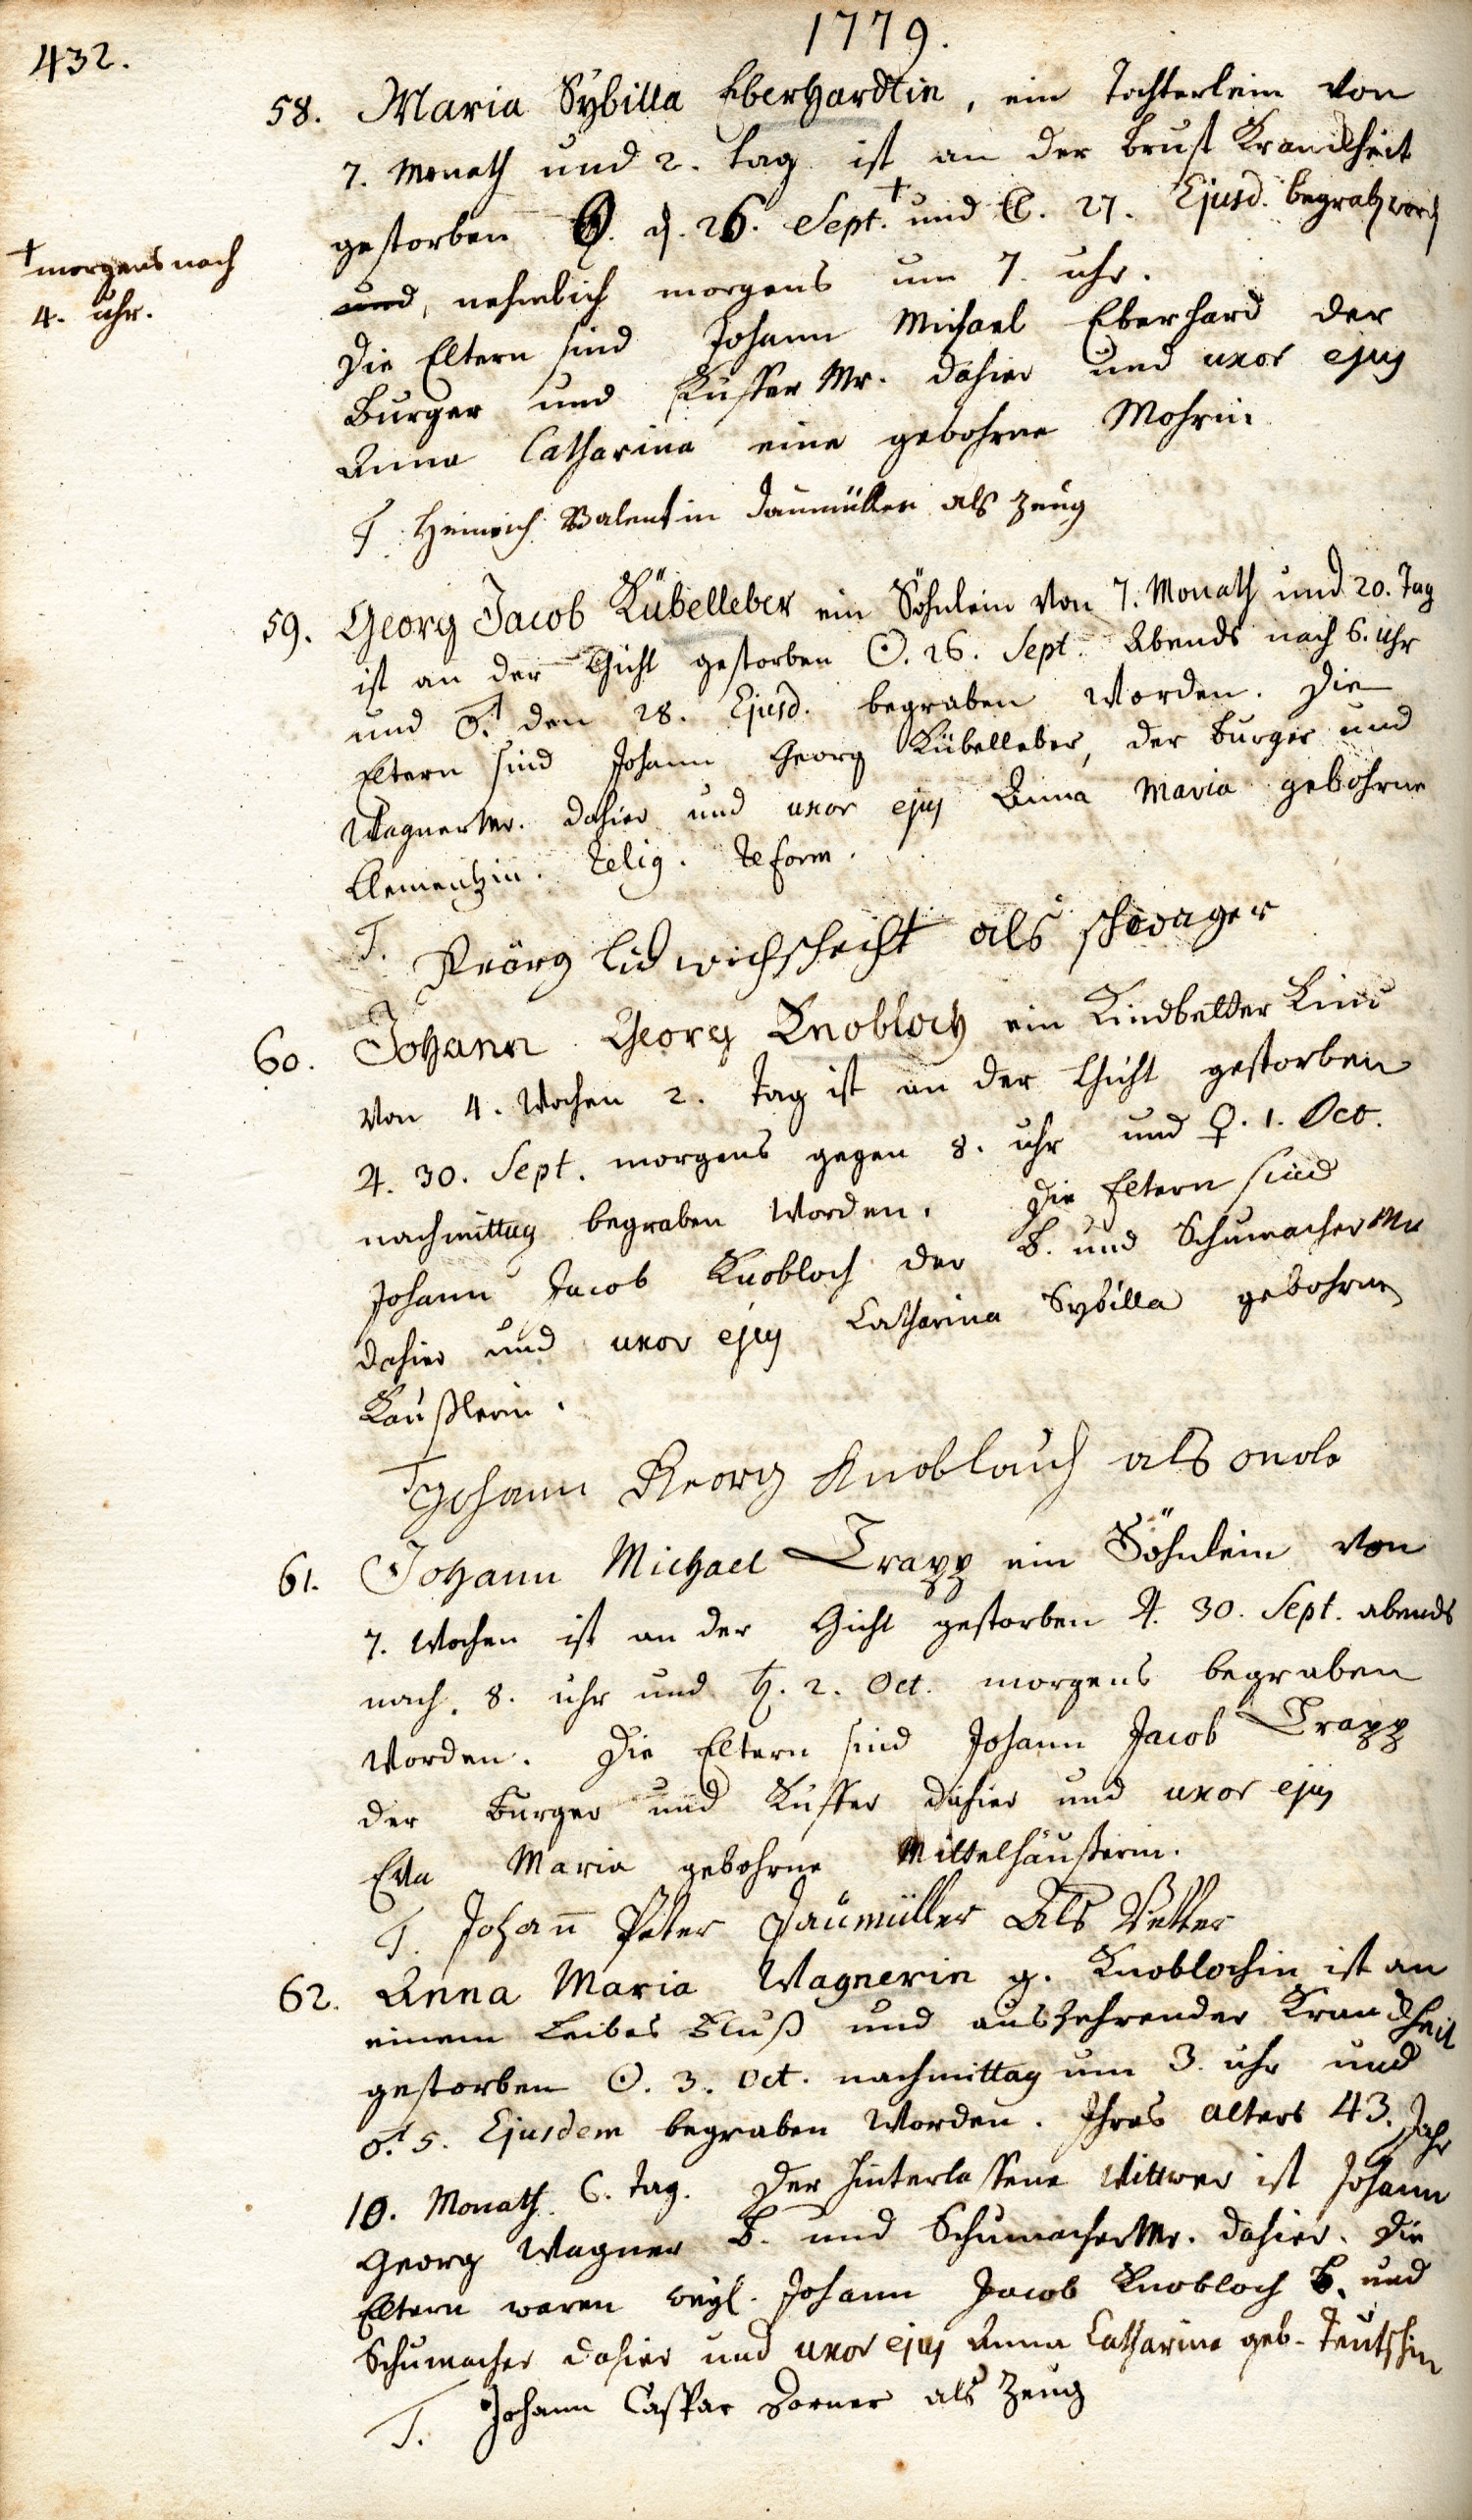 1779.
432.
58. Maria Sybilla Eberhardtin, ein Tochterlein von
7. Monath und 2. Tag ist an der Brust Kranckheit
gestorben ☉. d. 26. Sept. + und ☾. 27. Ejusd. begrab. word.
+ morgens nach
4. uhr.
und, nehmlich morgens um 7. uhr.
Die Eltern sind Johann Michael Eberhard der
Burger und Kuffer Mr. dahier und uxor ejus
Anna Catharina eine gebohrne Mohrin
T. Heinrich Valentin Daumüller als Zeug
59. Georg Jacob Kübelleber ein Söhnlein von 7. Monath und 20. Tag
ist an der Gicht gestorben ☉. 26. Sept. Abends nach 6. uhr
und ♂. den 28. Ejusd. begraben worden. Die
Eltern sind Johann Georg Kübelleber, der Burger und
Wagner Mr. dahier und uxor ejus Anna Maria gebohrne
Clementzin. relig. reform.
T. Geörg als schwager
60. Johann Georg Knobloch ein Kindbetter Kind
von 4. Wochen 2. Tag ist an der Gicht gestorben
♃. 30. Sept. morgens gegen 8. uhr und ♀. 1. Oct.
nachmittag begraben worden. Die Eltern sind
Johann Jacob Knobloch der B. und Schumacher Mr
dahier und uxor ejus Catharina Sybilla gebohrne
Laußlerin.
T Johann Georg Knoblauch als
61. Johann Michael Trapp ein Söhnlein von
7. Wochen ist an der Gicht gestorben ♃. 30. Sept. abends
nach. 8. uhr und ♄. 2. Oct. morgens begraben
worden. Die Eltern sind Johann Jacob Trapp
der Burger und Kuffer dahier und uxor ejus
Eva Maria gebohrne Mittelhäußerin.
T. Johan̄ Peter Daumüller Als Vetter
62. Anna Maria Wagnerin g. Knoblochin ist an
einem Leibes Fluß und auszehrender Kranckheit
gestorben ☉. 3. Oct. nachmittag um 3. uhr und
♂. 5. Ejusdem begraben worden. Ihres alters 43. Jahr
10. Monath. 6. Tag. Der hinterlassene Wittwer ist Johann
Georg Wagner B. und Schumacher Mr. dahier. Die
Eltern waren weyl. Johann Jacob Knobloch B. und
Schumacher dahier und uxor ejus Anna Catharina geb. Teutschin
T. Johann Caspar Dorner als Zeug